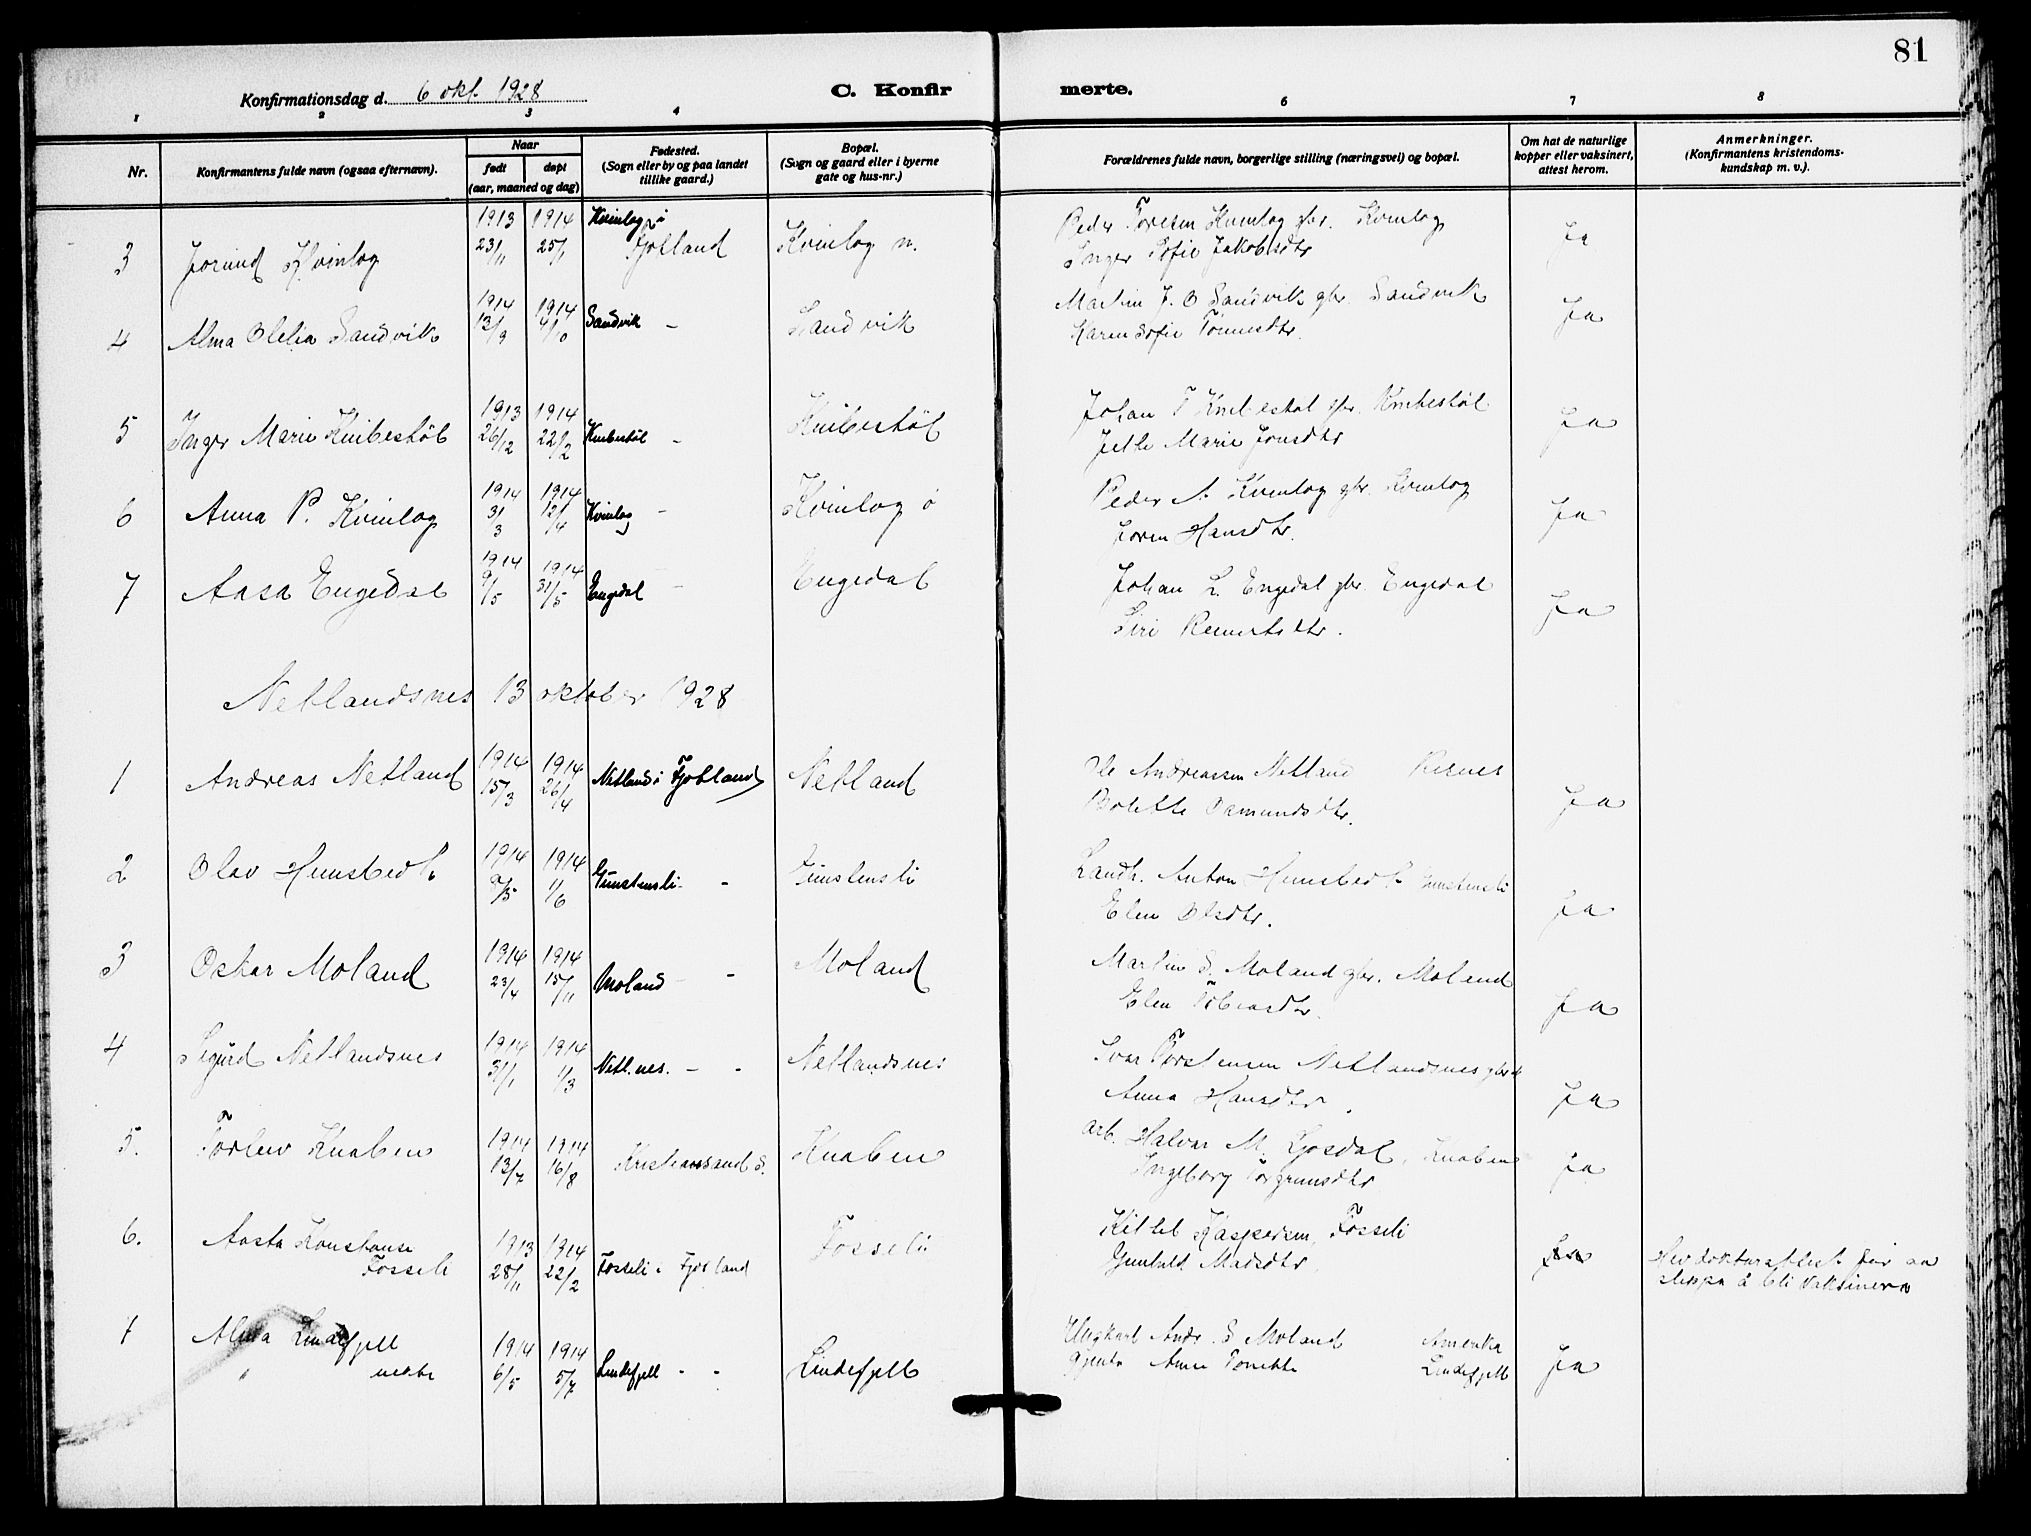 81
Konfirmationsdag d. 6 okt. 1928 C. Konfir merte.
1 2 3 4 6 7 8
Nr. Konfirmantens fulde navn (ogsaa efternavn). Naar født døpt (aar, maaned og dag) Fødested. (Sogn eller by og paa landet tillike gaard.) Bopæl. (Sogn og gaard eller i byerne gate og hus-nr.) Forældrenes fulde navn, borgerlige stilling (næringsvei) og bopæl. Om hat de naturlige kopper eller vaksinert, attest herom. Anmerkninger. (Konfirmantens kristendoms-kundskap m. v.).
1913 1914 Kvinlog i Peder Toresen Kvinlog gbr. Kvinlog
3 Jorund Kvinlog 23/11 25/1 Fjotland Kvinlog n. Inger Sofie Jakobsdtr Ja
1914 1914 Martin J. O Sandvik gbr Sandvik
4 Alma Olelia Sandvik 12/9 4/10 Sandvik - Sandvik Karen Sofie Tønnesdtr. Ja
1913 1914 Johan T Knibestøl gbr. Knibestøl
5 Inger Marie Knibestøl 26/12 22/2 Knibestøl - Knibestøl Jette Marie Jonsdtr Ja
1914 1914 Peder A. Kvinlog gbr. Kvinlog
6 Anna P. Kvinlog 3/3 12/4 Kvinlog - Kvinlog ø Joren Hansdtr. Ja
1914 1914 Johan L. Engedal gbr. Engedal
7 Aasa Engedal 9/5 31/5 Engedal - Engedal Siri Reinertsdtr. Ja
Netlandsnes 13 oktober 1928
1914 1914 Ole Andreassen Netland Risnes
1 Andreas Netland 15/3 26/4 Netland i Fjotland Netland Bolette Osmundsdtr. Ja
1914 1914 Landh. Anton Hunsbedt Gunstensli
2 Olav Hunsbedt 9/5 1/6 Gunstensli - Gunstensli Elen Olsdtr. Ja
1914 1914 Martin S. Moland gbr. Moland
3 Oskar Moland 23/4 15/11 Moland - - Moland Elen Tobiasdtr. Ja
1914 1914 Ivar Torstensen Netlandsnes gbr
4 Sigurd Netlandsnes 31/1 1/3 Netl.nes. - - Netlandsnes Anna Hansdtr. Ja
1914 1914 arb. Halvar M. Losdal, Knaben
5. Torleiv Knaben 13/7 16/8 Kristianssand S. Knaben Ingeborg Torgrimsdtr Ja
6. Aasta Konstanse 1913 1914 Fosseli Kittel Kaspersen, Fosseli
Fosseli 28/11 22/2 Fosseli i Fjotland Gunhild Madsdtr. Hev dokturattest for aa
sleppa å bli vaksinera
7 Alma Lindefjell 1914 1914 Ungkarl Andr. S Moland Amerika
" 6/5 5/7 Lindefjell - - Lindefjell gjenta Anne Tonette Lindefjell Ja